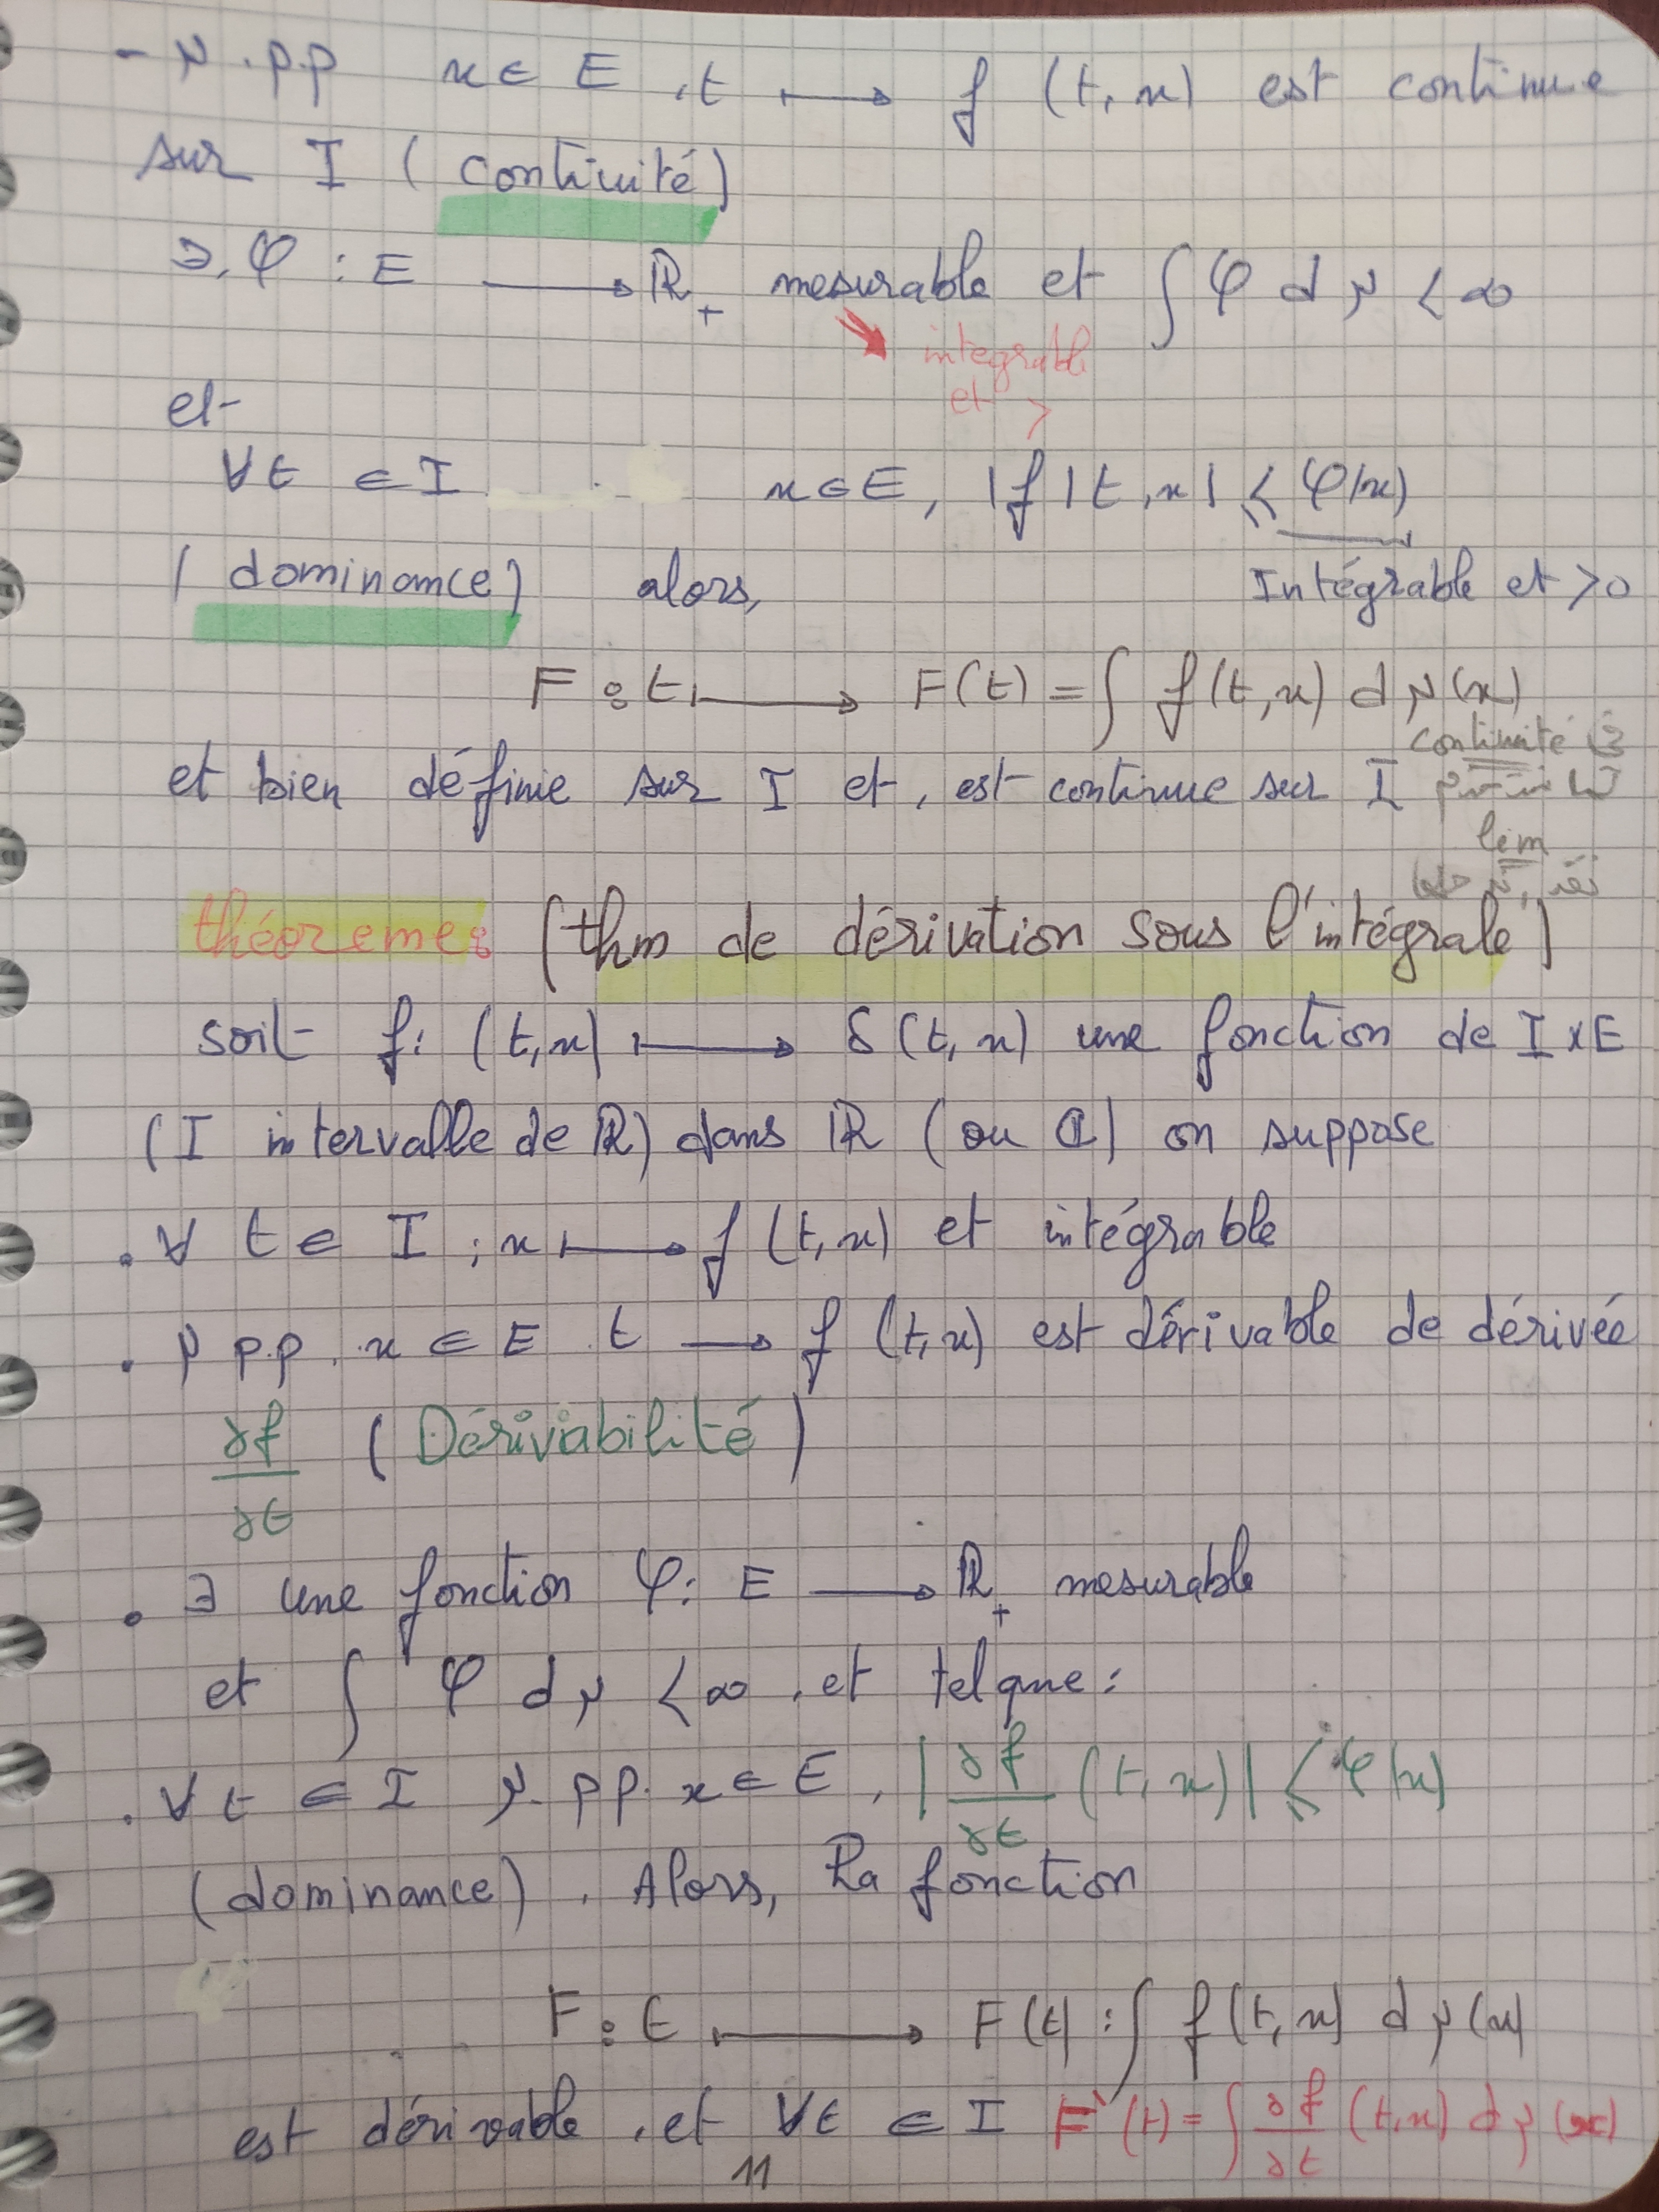 - μ.p.p x ∈ E , t ⟼ f (t, x) est continue
sur I ( continuité)
∃, φ : E ⟶ ℝ₊ mesurable et ∫ φ dμ < ∞
integrable
et >
et
∀t ∈ I x ∈ E, |f|t, x| ⩽ φ(x)
( dominance) alors, Intégrable et >0
F : t ⟼ F(t) = ∫ f(t, x) dμ(x)
continuité
et bien définie sur I et, est continue sur I
lim
théoreme: (thm de dérivation sous l'intégrale)
soit f: (t, x) ⟼ f(t, x) une fonction de I x E
(I intervalle de ℝ) dans ℝ (ou ℂ) on suppose
. ∀ t ∈ I ; x ⟼ f (t, x) et intégrable
. μ p.p. x ∈ E t ⟶ f (t, x) est dérivable de dérivée
∂f/∂t ( Dériviabilité)
. ∃ une fonction φ: E ⟶ ℝ₊ mesurable
et ∫ φ dμ < ∞ , et telque :
. ∀ t ∈ I μ. pp. x ∈ E , |∂f/∂t (t, x)| ⩽ φ(x)
(dominance) . Alors, la fonction
F : t ⟼ F(t) : ∫ f(t, x) dμ(x)
est dérivable , et ∀t ∈ I F'(t) = ∫ ∂f/∂t (t, x) dμ(x)
11